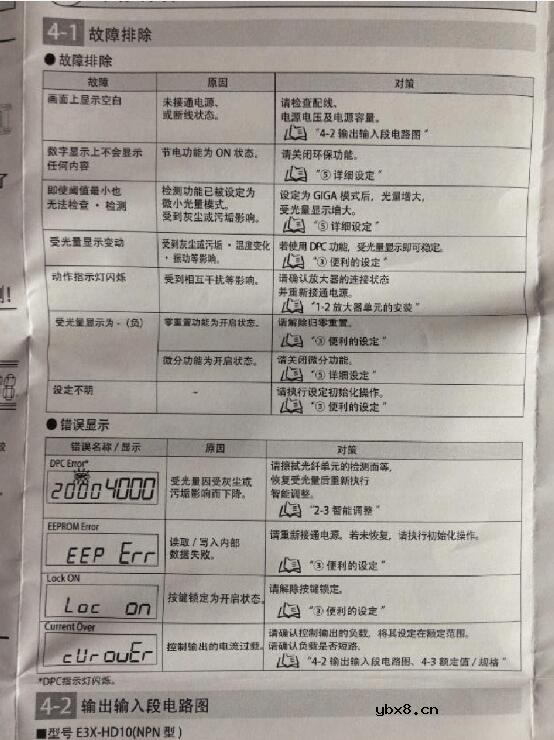 4-1 故障排除
● 故障排除
故障 原因 对策
画面上显示空白 未接通电源、 请检查配线、
或断线状态。 电源电压及电源容量。
"4-2 输出输入段电路图"
数字显示上不会显示 节电功能为 ON 状态。 请关闭环保功能。
任何内容 "⑤ 详细设定"
即使阈值最小也 检测功能已被设定为 设定为 GIGA 模式后，光量增大，
无法检查・检测 微小光量模式。 受光量显示增大。
受到灰尘或污垢影响。 "⑤ 详细设定"
受光量显示变动 受到灰尘或污垢・温度变化 若使用 DPC 功能，受光量显示即可稳定。
・振动等影响。 "③ 便利的设定"
动作指示灯闪烁 受到相互干扰等影响。 请确认放大器的连接状态
并重新接通电源。
"1-2 放大器单元的安装"
受光量显示为 -（负） 零重置功能为开启状态。 请解除归零重置。
"③ 便利的设定"
微分功能为开启状态。 请关闭微分功能。
"⑤ 详细设定"
设定不明 - 请执行设定初始化操作。
"③ 便利的设定"
● 错误显示
错误名称 / 显示 原因 对策
DPC Error*
2000 4000 受光量因受灰尘或 请擦拭光纤单元的检测面等，
污垢影响而下降。 恢复受光量后重新执行
智能调整。
"2-3 智能调整"
EEPROM Error
EEP Err 读取 / 写入内部 请重新接通电源。若未恢复，请执行初始化操作。
数据失败。 "③ 便利的设定"
Lock ON
Loc on 按键锁定为开启状态。 请解除按键锁定。
"③ 便利的设定"
Current Over
cUr ouEr 控制输出的电流过载。 请确认控制输出的负载，将其设定在额定范围。
请确认负载是否短路。
"4-2 输出输入段电路图、4-3 额定值 / 规格"
*DPC指示灯闪烁。
4-2 输出输入段电路图
ybx8.cn
■型号 E3X-HD10(NPN 型)